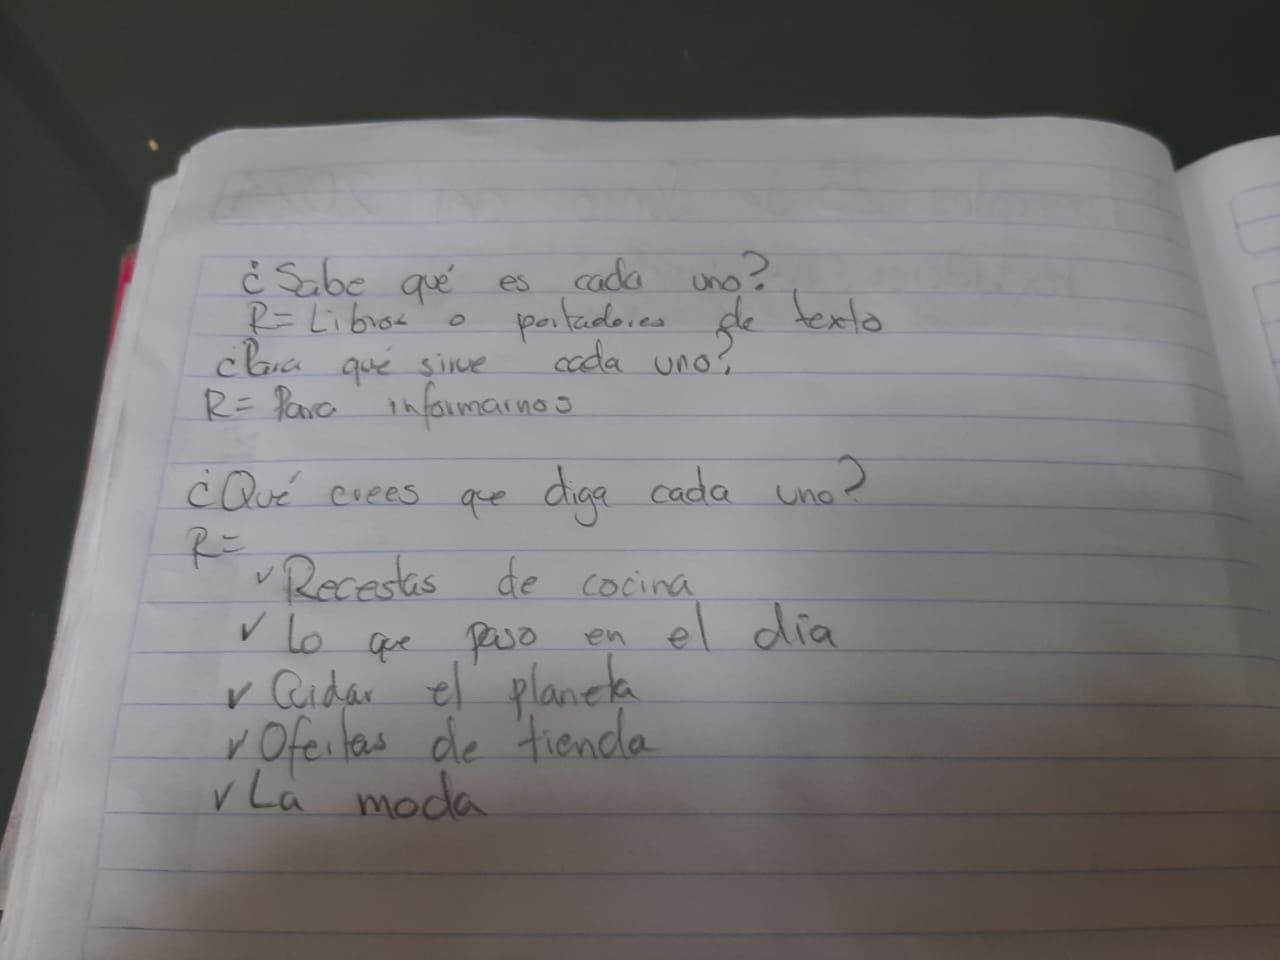 ¿Sabe qué es cada uno?
R= Libros o portadores de texto
¿Para qué sirve cada uno?
R= Para informarnos
¿Qué crees que diga cada uno?
R=
✓ Recestas de cocina
✓ Lo que paso en el día
✓ Cuidar el planeta
✓ Ofertas de tienda
✓ La moda